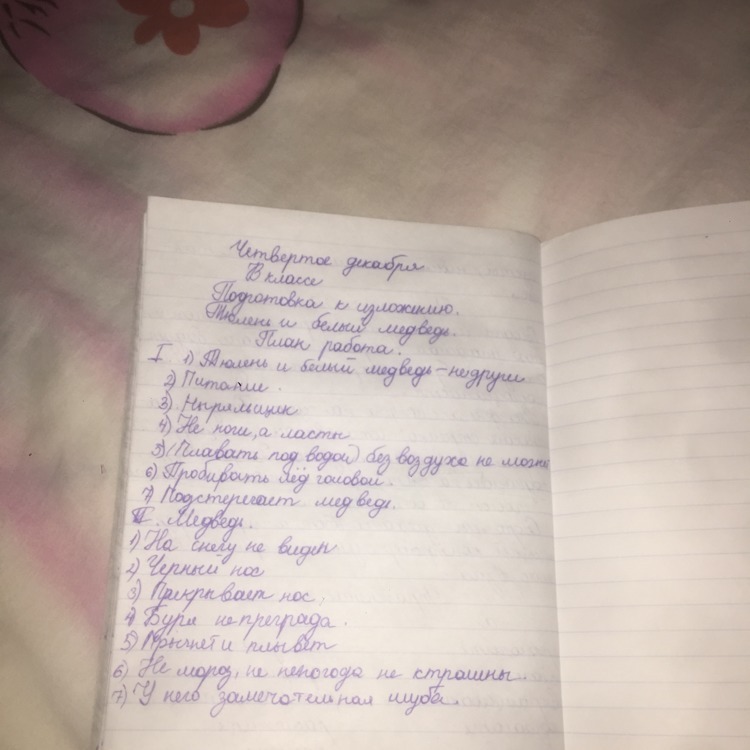 Четвертое декабря
В классе
Подготовка к изложению.
Тюлень и белый медведь.
План работа.
I. 1) Тюлень и белый медведь - недруги
2) Питание.
3) Ныряльщик
4) Не ноги, а ласты
5) (Плавать под водой) без воздуха не можно
6) Пробивать лёд головой.
7) Подстерегает медведь.
II. Медведь.
1) На снегу не виден
2) Черный нос
3) Прикрывает нос,
4) Буря не преграда.
5) и плывёт
6) Не мороз, не непогода не страшны.
7) У него замечательная шуба.